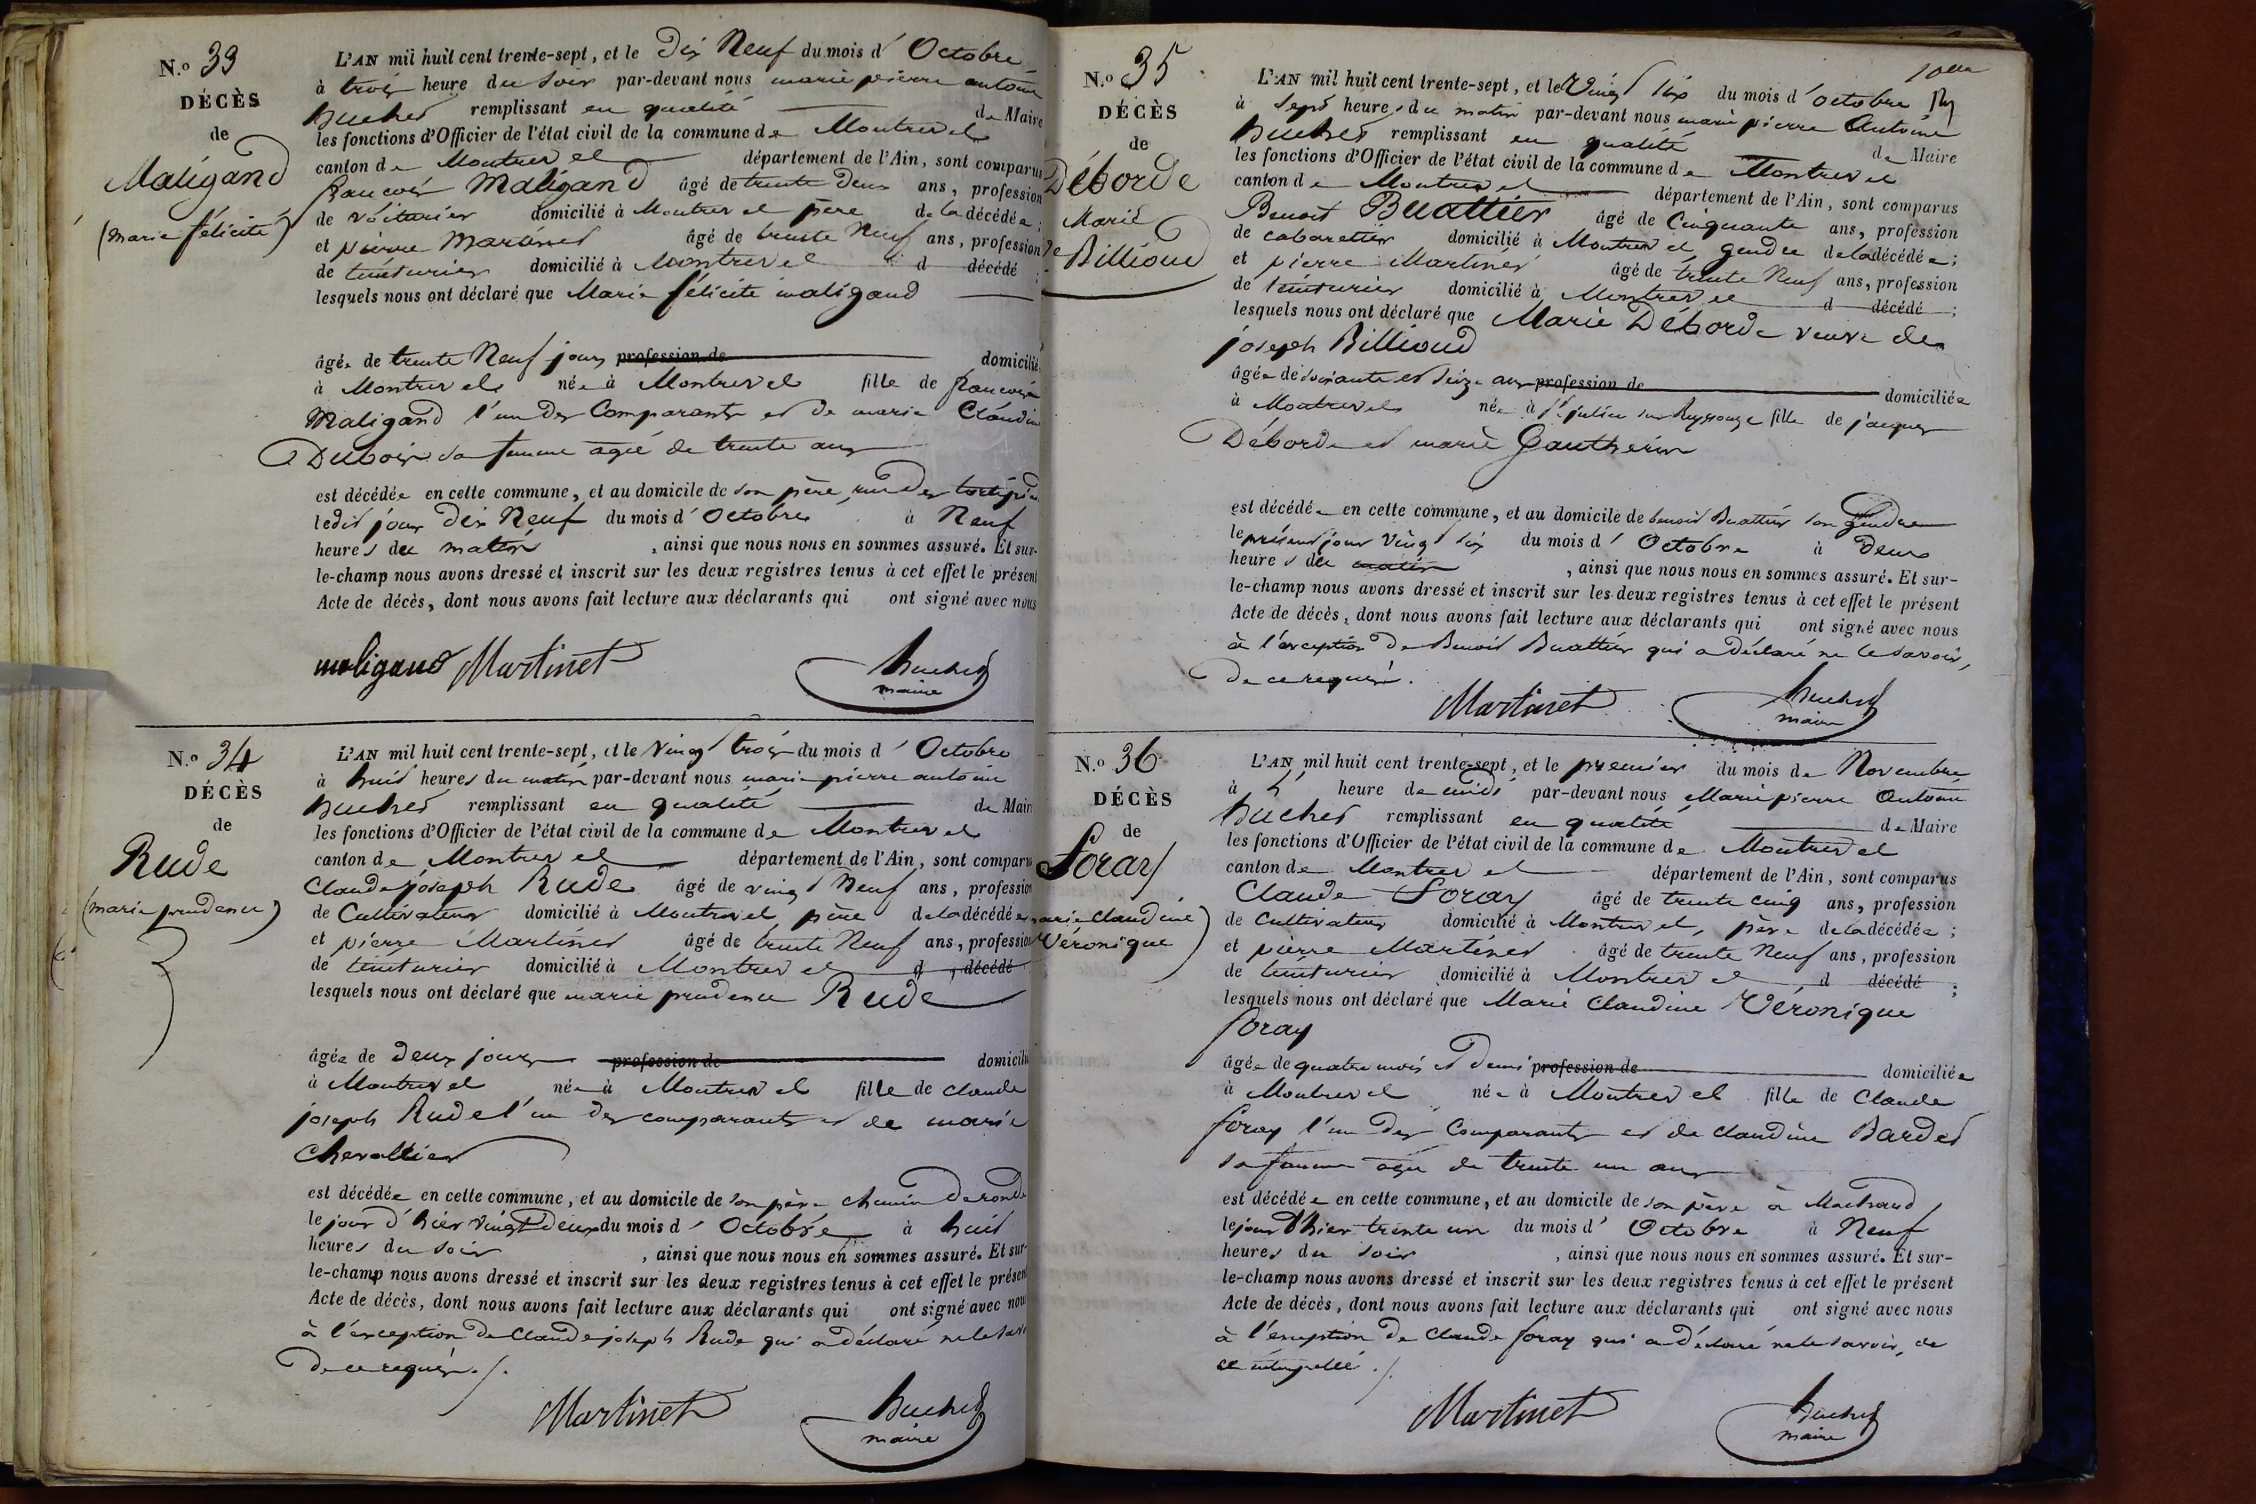 N.° 33
DÉCÈS
de
Maligand
(marie félicité)
L'AN mil huit cent trente-sept, et le Dix Neuf du mois d'Octobre
à trois heure du soir par-devant nous marie pierre antoine
Buchet remplissant en qualité de Maire
les fonctions d'Officier de l'état civil de la commune de Montrevel
canton de Montrevel département de l'Ain, sont comparus
françois Maligand âgé de trente deux ans, profession
de voiturier domicilié à Montrevel père de la décédée;
et pierre Martinet âgé de trente Neuf ans, profession
de teinturier domicilié à Montrevel d décédé
lesquels nous ont déclaré que Marie félicité maligand
âgée de trente Neuf jours profession de domicilié
à Montrevel née à Montrevel fille de françois
Maligand l'un des Comparants et de marie Claudine
Dubois sa femme agée de trente ans
est décédée en cette commune, et au domicile de son père, rue des
ledit jour Dix Neuf du mois d'Octobre à Neuf
heures du matin, ainsi que nous nous en sommes assuré. Et sur-
le-champ nous avons dressé et inscrit sur les deux registres tenus à cet effet le présent
Acte de décès, dont nous avons fait lecture aux déclarants qui ont signé avec nous
maligand Martinet Buchet
maire
N.° 34
DÉCÈS
de
Rude
(marie prudence)
L'AN mil huit cent trente-sept, et le Vingt trois du mois d'Octobre
à huit heures du matin par-devant nous marie pierre antoine
Buchet remplissant en qualité de Maire
les fonctions d'Officier de l'état civil de la commune de Montrevel
canton de Montrevel département de l'Ain, sont comparus
Claude joseph Rude âgé de vingt Neuf ans, profession
de Cultivateur domicilié à Montrevel père de la décédée
et pierre Martinet âgé de trente Neuf ans, profession
de teinturier domicilié à Montrevel d décédé
lesquels nous ont déclaré que marie prudence Rude
âgée de deux jours profession de domicilié
à Montrevel née à Montrevel fille de claude
joseph Rude l'un des comparants et de marie
Chevallier
est décédée en cette commune, et au domicile de son père chemin de ronde
le jour d'hier vingt deux du mois d'Octobre à huit
heures du soir, ainsi que nous nous en sommes assuré. Et sur-
le-champ nous avons dressé et inscrit sur les deux registres tenus à cet effet le présent
Acte de décès, dont nous avons fait lecture aux déclarants qui ont signé avec nous
à l'exception de Claude joseph Rude qui a déclaré ne le savoir
de ce requis./.
Martinet Buchet
maire
N.° 35
DÉCÈS
de
Déborde
Marie
Ve
Billioud
L'AN mil huit cent trente-sept, et le Vingt Six du mois d'octobre
à sept heures du matin par-devant nous marie pierre Antoine
Buchet remplissant en qualité de Maire
les fonctions d'Officier de l'état civil de la commune de Montrevel
canton de Montrevel département de l'Ain, sont comparus
Benoit Buattier âgé de Cinquante ans, profession
de cabaretier domicilié à Montrevel, gendre de la décédée;
et pierre Martinet âgé de trente Neuf ans, profession
de teinturier domicilié à Montrevel d décédé;
lesquels nous ont déclaré que Marie Déborde veuve de
joseph Billioud
âgée de soixante et seize ans profession de domiciliée
à Montrevel née à St julien sur Reyssouze fille de jacques
Déborde et marie Gautherin
est décédée en cette commune, et au domicile de benoit Buattier son gendre
le présent jour vingt six du mois d'Octobre à deux
heures du matin, ainsi que nous nous en sommes assuré. Et sur-
le-champ nous avons dressé et inscrit sur les deux registres tenus à cet effet le présent
Acte de décès, dont nous avons fait lecture aux déclarants qui ont signé avec nous
à l'exception de Benoit Buattier qui a déclaré ne le savoir,
de ce requis.
Martinet Buchet
maire
N.° 36
DÉCÈS
de
Foray
marie Claudine
Véronique
L'AN mil huit cent trente-sept, et le premier du mois de Novembre
à heure de midi par-devant nous Marie pierre Antoine
Buchet remplissant en qualité de Maire
les fonctions d'Officier de l'état civil de la commune de Montrevel
canton de Montrevel département de l'Ain, sont comparus
Claude Foray âgé de trente cinq ans, profession
de Cultivateur domicilié à Montrevel, père de la décédée;
et pierre Martinet âgé de trente Neuf ans, profession
de teinturier domicilié à Montrevel d décédé;
lesquels nous ont déclaré que Marie Claudine Véronique
foray
âgée de quatre mois et demi profession de domiciliée
à Montrevel née à Montrevel fille de Claude
foray l'un des Comparants et de claudine Bardet
sa femme agée de trente un ans
est décédée en cette commune, et au domicile de son père à
le jour d'hier trente un du mois d'Octobre à Neuf
heures du soir, ainsi que nous nous en sommes assuré. Et sur-
le-champ nous avons dressé et inscrit sur les deux registres tenus à cet effet le présent
Acte de décès, dont nous avons fait lecture aux déclarants qui ont signé avec nous
à l'exception de Claude foray qui a déclaré ne le savoir, de
ce interpellé./.
Martinet Buchet
maire